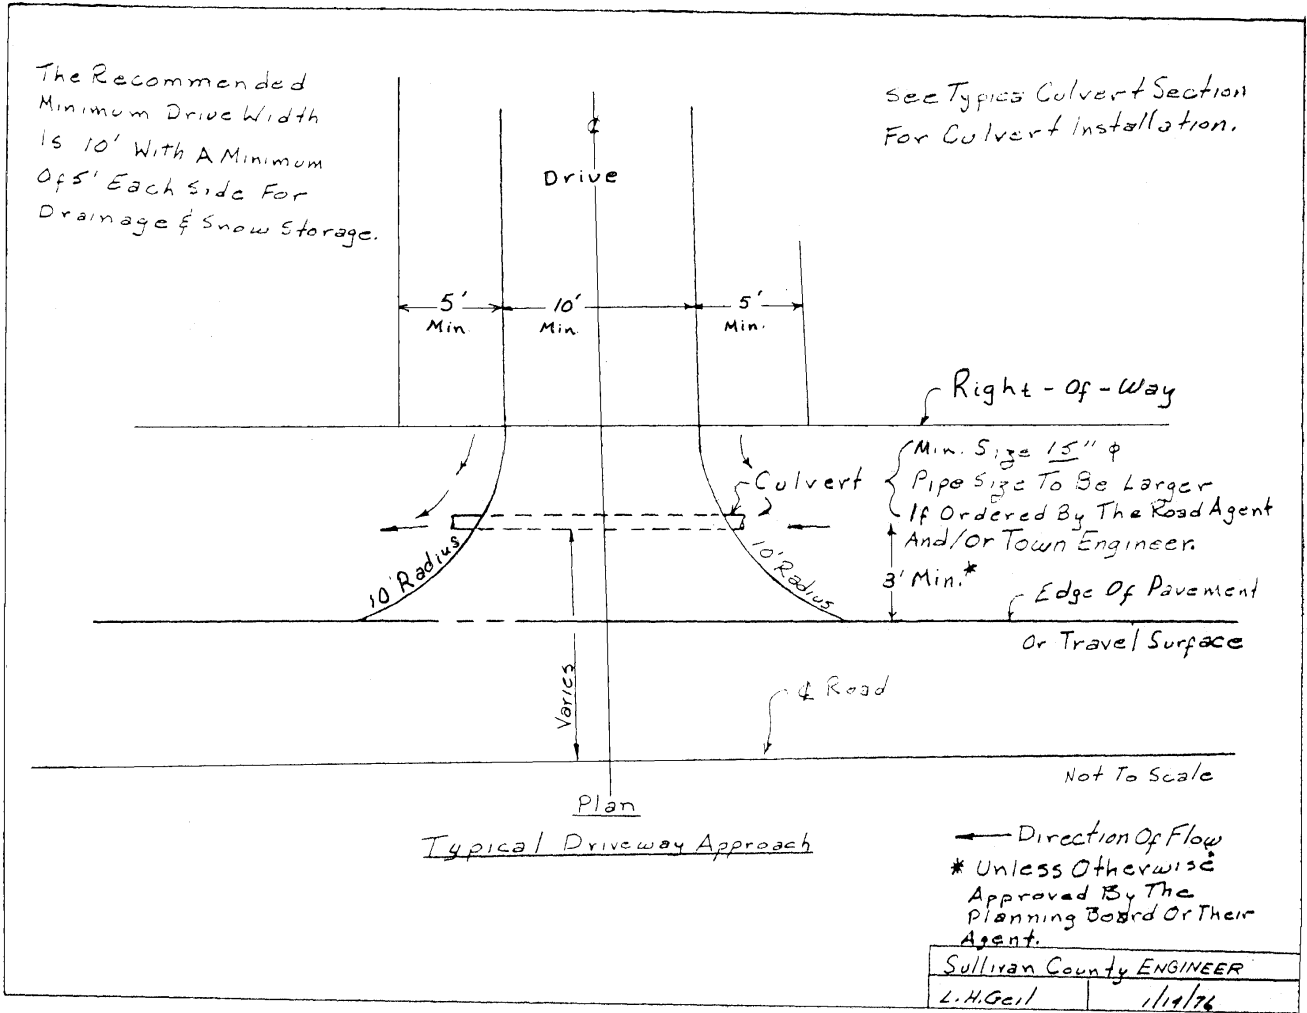 The Recommended
Minimum Drive Width
Is 10' With A Minimum
Of 5' Each Side For
Drainage & Snow Storage.
See Typica Culvert Section
For Culvert Installation.
℄
Drive
5'
Min.
10'
Min
5'
Min.
Right-Of-Way
Culvert
Min. Size 15" φ
Pipe Size To Be Larger
If Ordered By The Road Agent
And/Or Town Engineer.
10' Radius
10' Radius
3' Min.*
Edge Of Pavement
Or Travel Surface
Varies
℄ Road
Not To Scale
Plan
Typical Driveway Approach
Direction Of Flow
* Unless Otherwise
Approved By The
Planning Board Or Their
Agent.
Sullivan County ENGINEER
L.H.Geil
1/19/76